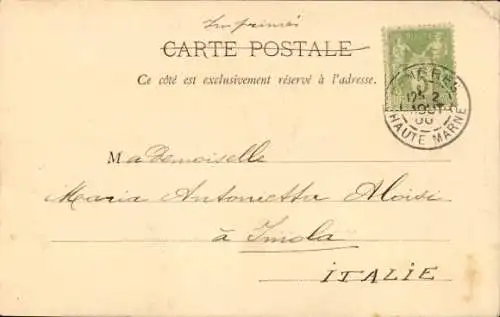 Imprimés
CARTE POSTALE
Ce côté est exclusivement réservé à l'adresse.
AOUT
HAUTE MARNE
Mademoiselle
Maria Antonietta Aloisi
à Imola
ITALIE